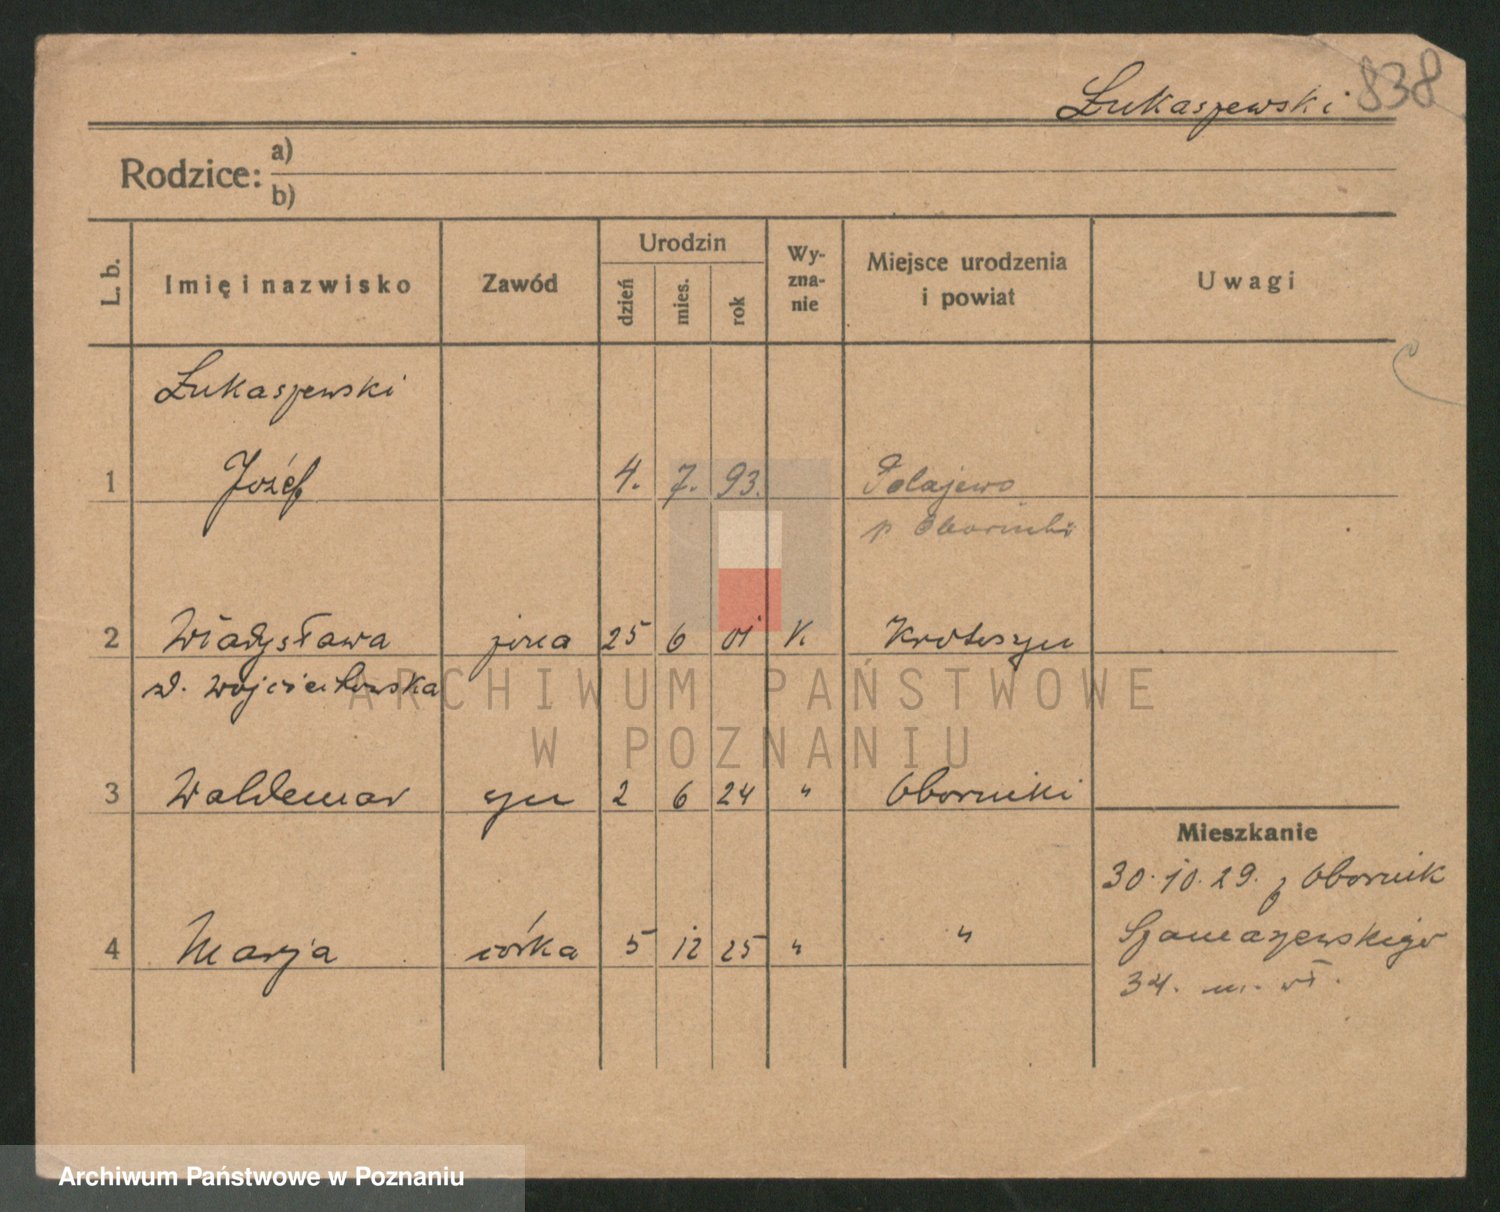 Łukaszewski 838
Rodzice: a)
b)
L. b. Imię i nazwisko Zawód Urodzin dzień mies. rok Wy-zna-nie Miejsce urodzenia i powiat Uwagi
Łukaszewski
1 Józef 4. 7. 93. Połajewo
p Oborniki
2 Władysława żona 25 6 01 k. Krotoszyn
z d. Wojciechowska
3 Waldemar syn 2 6 24 " Oborniki
Mieszkanie
30.10.29. z Obornik
4 Marja córka 5 12 25 " "
Szamarzewskiego
34. m. wł.
ARCHIWUM PAŃSTWOWE
W POZNANIU
Archiwum Państwowe w Poznaniu